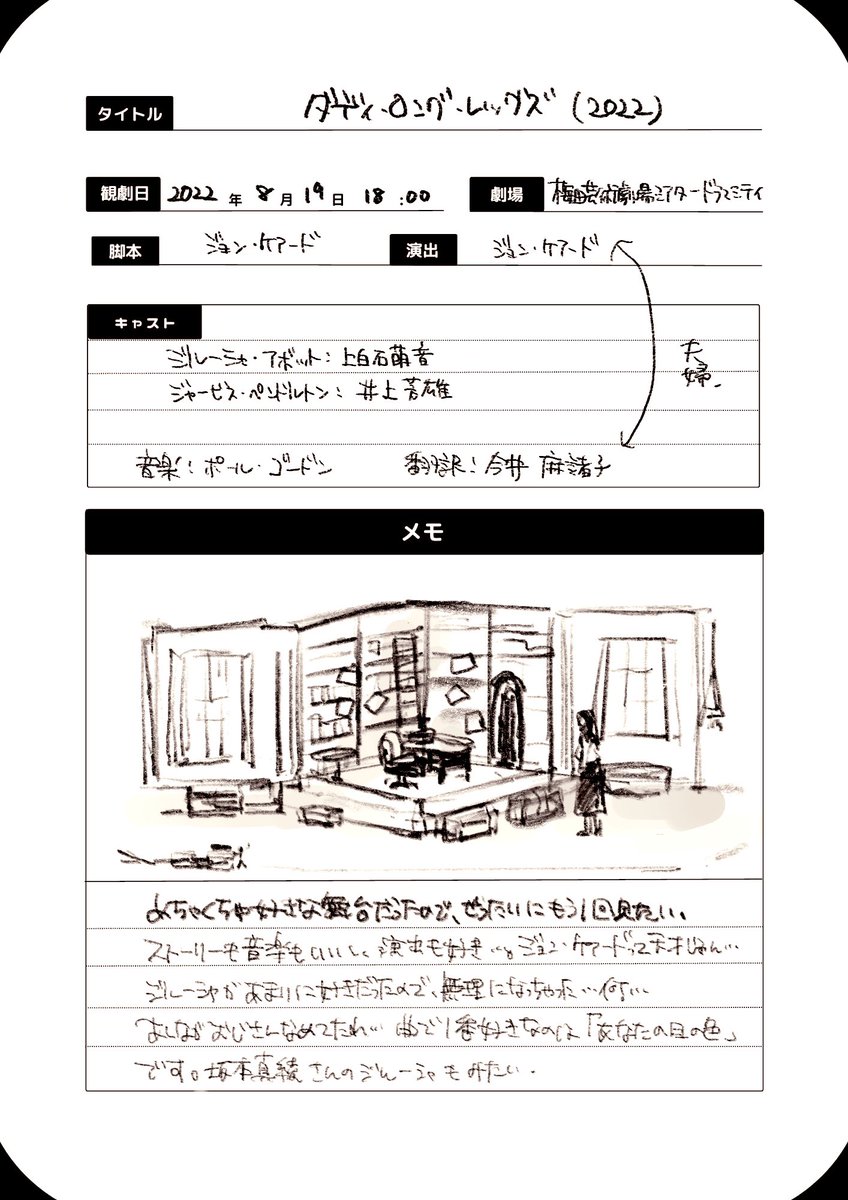 タイトル ダディ・ロング・レッグズ (2022)
観劇日 2022 年 8 月 19 日 18 :00 劇場 梅田芸術劇場シアタードラマシティ
脚本 ジョン・ケアード 演出 ジョン・ケアード
キャスト
ジルーシャ・アボット：上白石萌音
ジャービス・ペンドルトン：井上芳雄
夫婦.
音楽：ポール・ゴードン 翻訳：今井麻緒子
メモ
めちゃくちゃ好きな舞台だったので、ぜったいにもう1回見たい。
ストーリーも音楽もいいし、演出も好き…。ジョン・ケアードって天才じゃん…
ジルーシャがあまりに好きだったので、無理になっちゃった…何…
あしながおじさんなめてたわ… 曲で1番好きなのは「あなたの目の色」
です。坂本真綾さんのジルーシャもみたい.